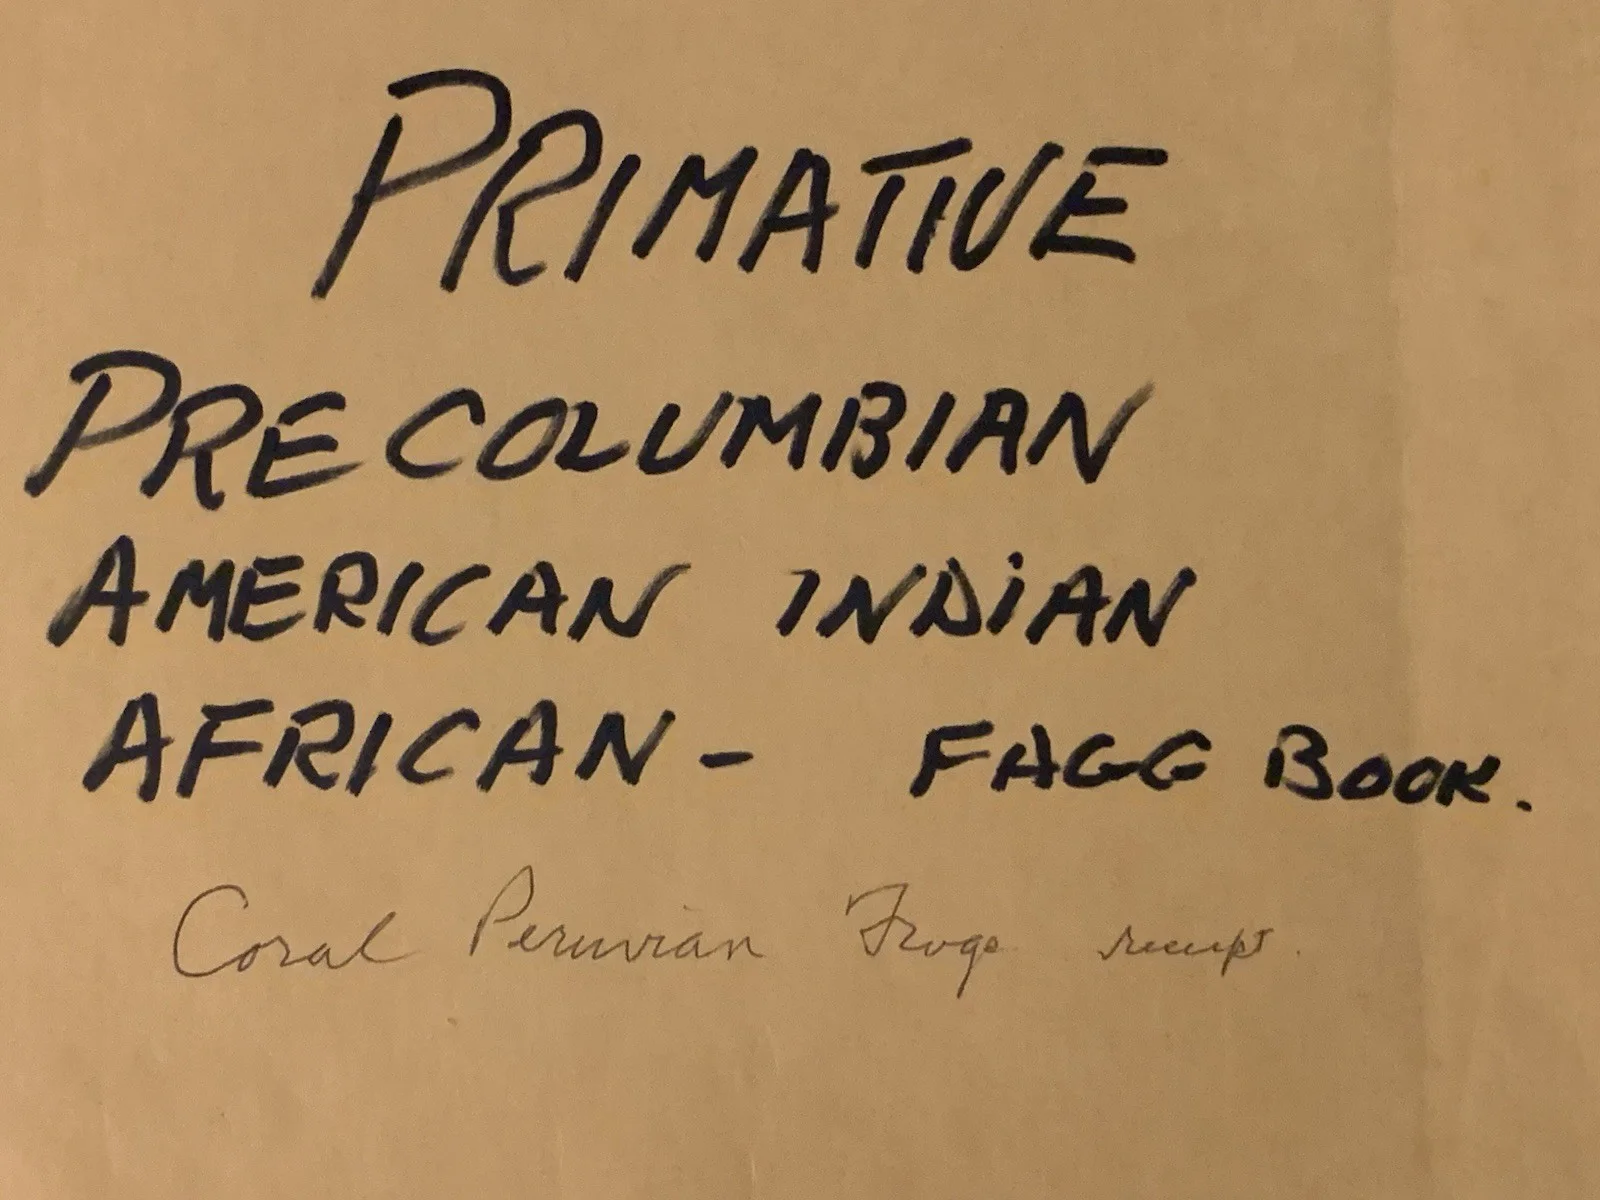 PRIMATIVE
PRECOLUMBIAN
AMERICAN INDIAN
AFRICAN - FAGG BOOK.
Coral Peruvian Frogs receipt.